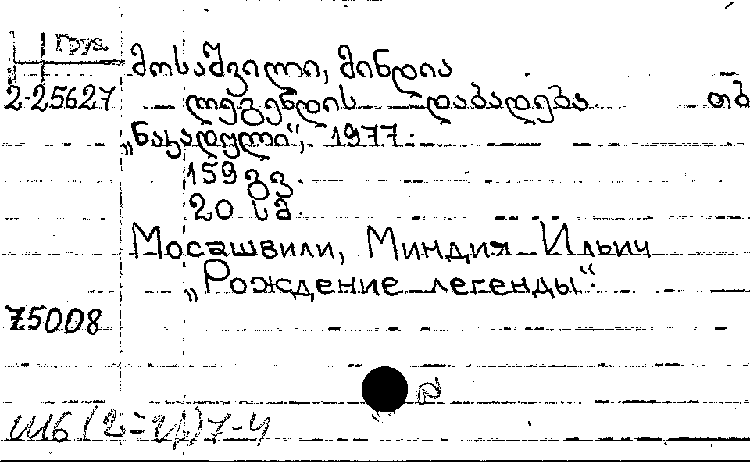 Груз.
მოსაშვილი, მინდია
2-25627 ლეგენდის დაბადება თბ
„ნაკადული“, 1977.
159 გვ.
20 სმ.
Мосашвили, Миндия Ильич
„Рождение легенды“.
75008
Ш6(2=Гр)7-4